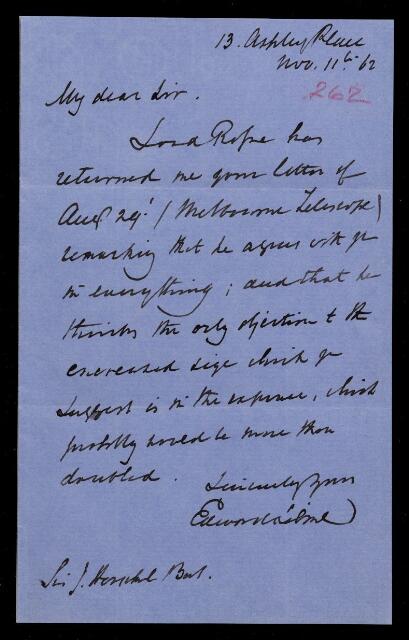 13. Ashley Place
Nov. 11th. 62
262
My dear Sir.
Lord Rosse has
returned me your letter of
Aug 29. (Melbourne Telescope)
remarking that he agrees with yr
in everything; and that he
thinks the only objection to the
encreased size which yr
suggest is in the expense, which
probably would be more than
doubled.
Sincerely yours
Edward Sabine
Sir J. Herschel Bart.